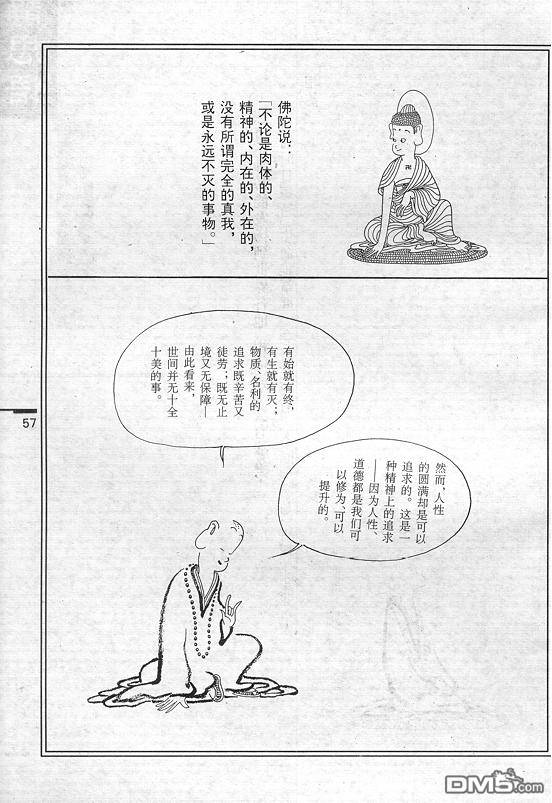 佛陀说：
「不论是肉体的、
精神的、内在的、外在的，
没有所谓完全的真我，
或是永远不灭的事物。」
有始就有终，
有生就有灭；
物质、名利的
追求既辛苦又
徒劳；既无止
境又无保障—
由此看来，
世间并无十全
十美的事。
然而，人性
的圆满却是可以
追求的。这是一
种精神上的追求
——因为人性、
道德都是我们可
以修为、可以
提升的。
57
DM5.com